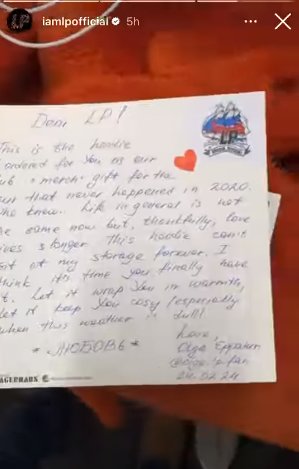 iamlpofficial 5h
Dear LP!
This is the hoodie
ordered for you as our
merch gift for the
that never happened in 2020.
Life in general is not
same now but, thankfully, love
longer. This hoodie can't
at my storage forever. I
think it's time you finally have
it. Let it wrap you in warmth,
let it keep you cosy (especially
when this weather is dull!
Love,
Olga
fan
24.02.24
*ЛЮБОВЬ*
LP